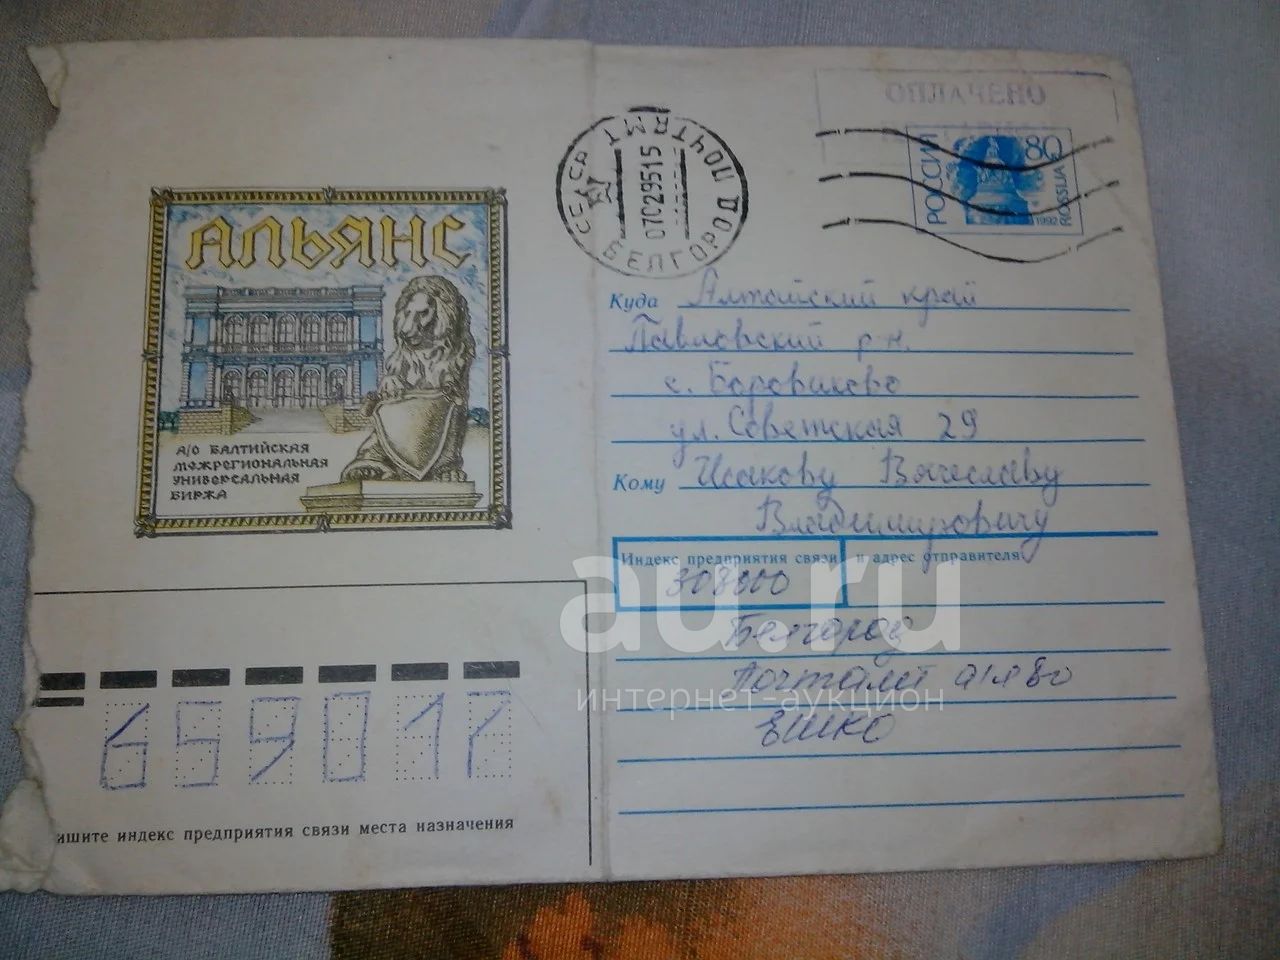 АЛЬЯНС
А/О БАЛТИЙСКАЯ
МЕЖРЕГИОНАЛЬНАЯ
УНИВЕРСАЛЬНАЯ
БИРЖА
СССР БЕЛГОРОД ПОЧТАМТ
07029515
ОПЛАЧЕНО
РОССИЯ
80
1992
ROSSIJA
Куда Алтайский край
Павловский р-н.
ул. Советская 29
Кому Исакову Вячеславу
Владимировичу
Индекс предприятия связи и адрес отправителя
308000
Белгород
Почтамт а/я 80
ЕШКО
659017
ишите индекс предприятия связи места назначения
au.ru
интернет-аукцион